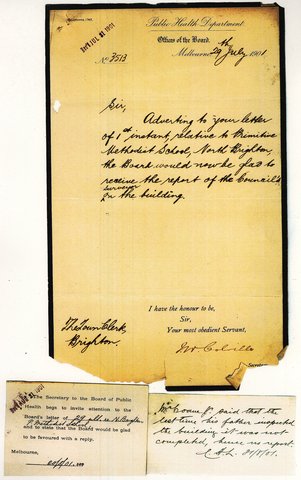 Public Health Department,
Offices of the Board,
Melbourne 29th July 1901.
No 3513
Sir,
Adverting to your letter
of 1st instant, relative to Primitive
Methodist School, North Brighton,
the Board would now be glad to
receive the report of the Council's
Surveyor
on the building.
I have the honour to be,
Sir,
Your most obedient Servant,
The Town Clerk,
Brighton.
The Secretary to the Board of Public
Health begs to invite attention to the
Board's letter of
Methodist School
and to state that the Board would be glad
to be favoured with a reply.
Melbourne,
said that the
last time his father inspected
the building it was not
completed, hence no report.